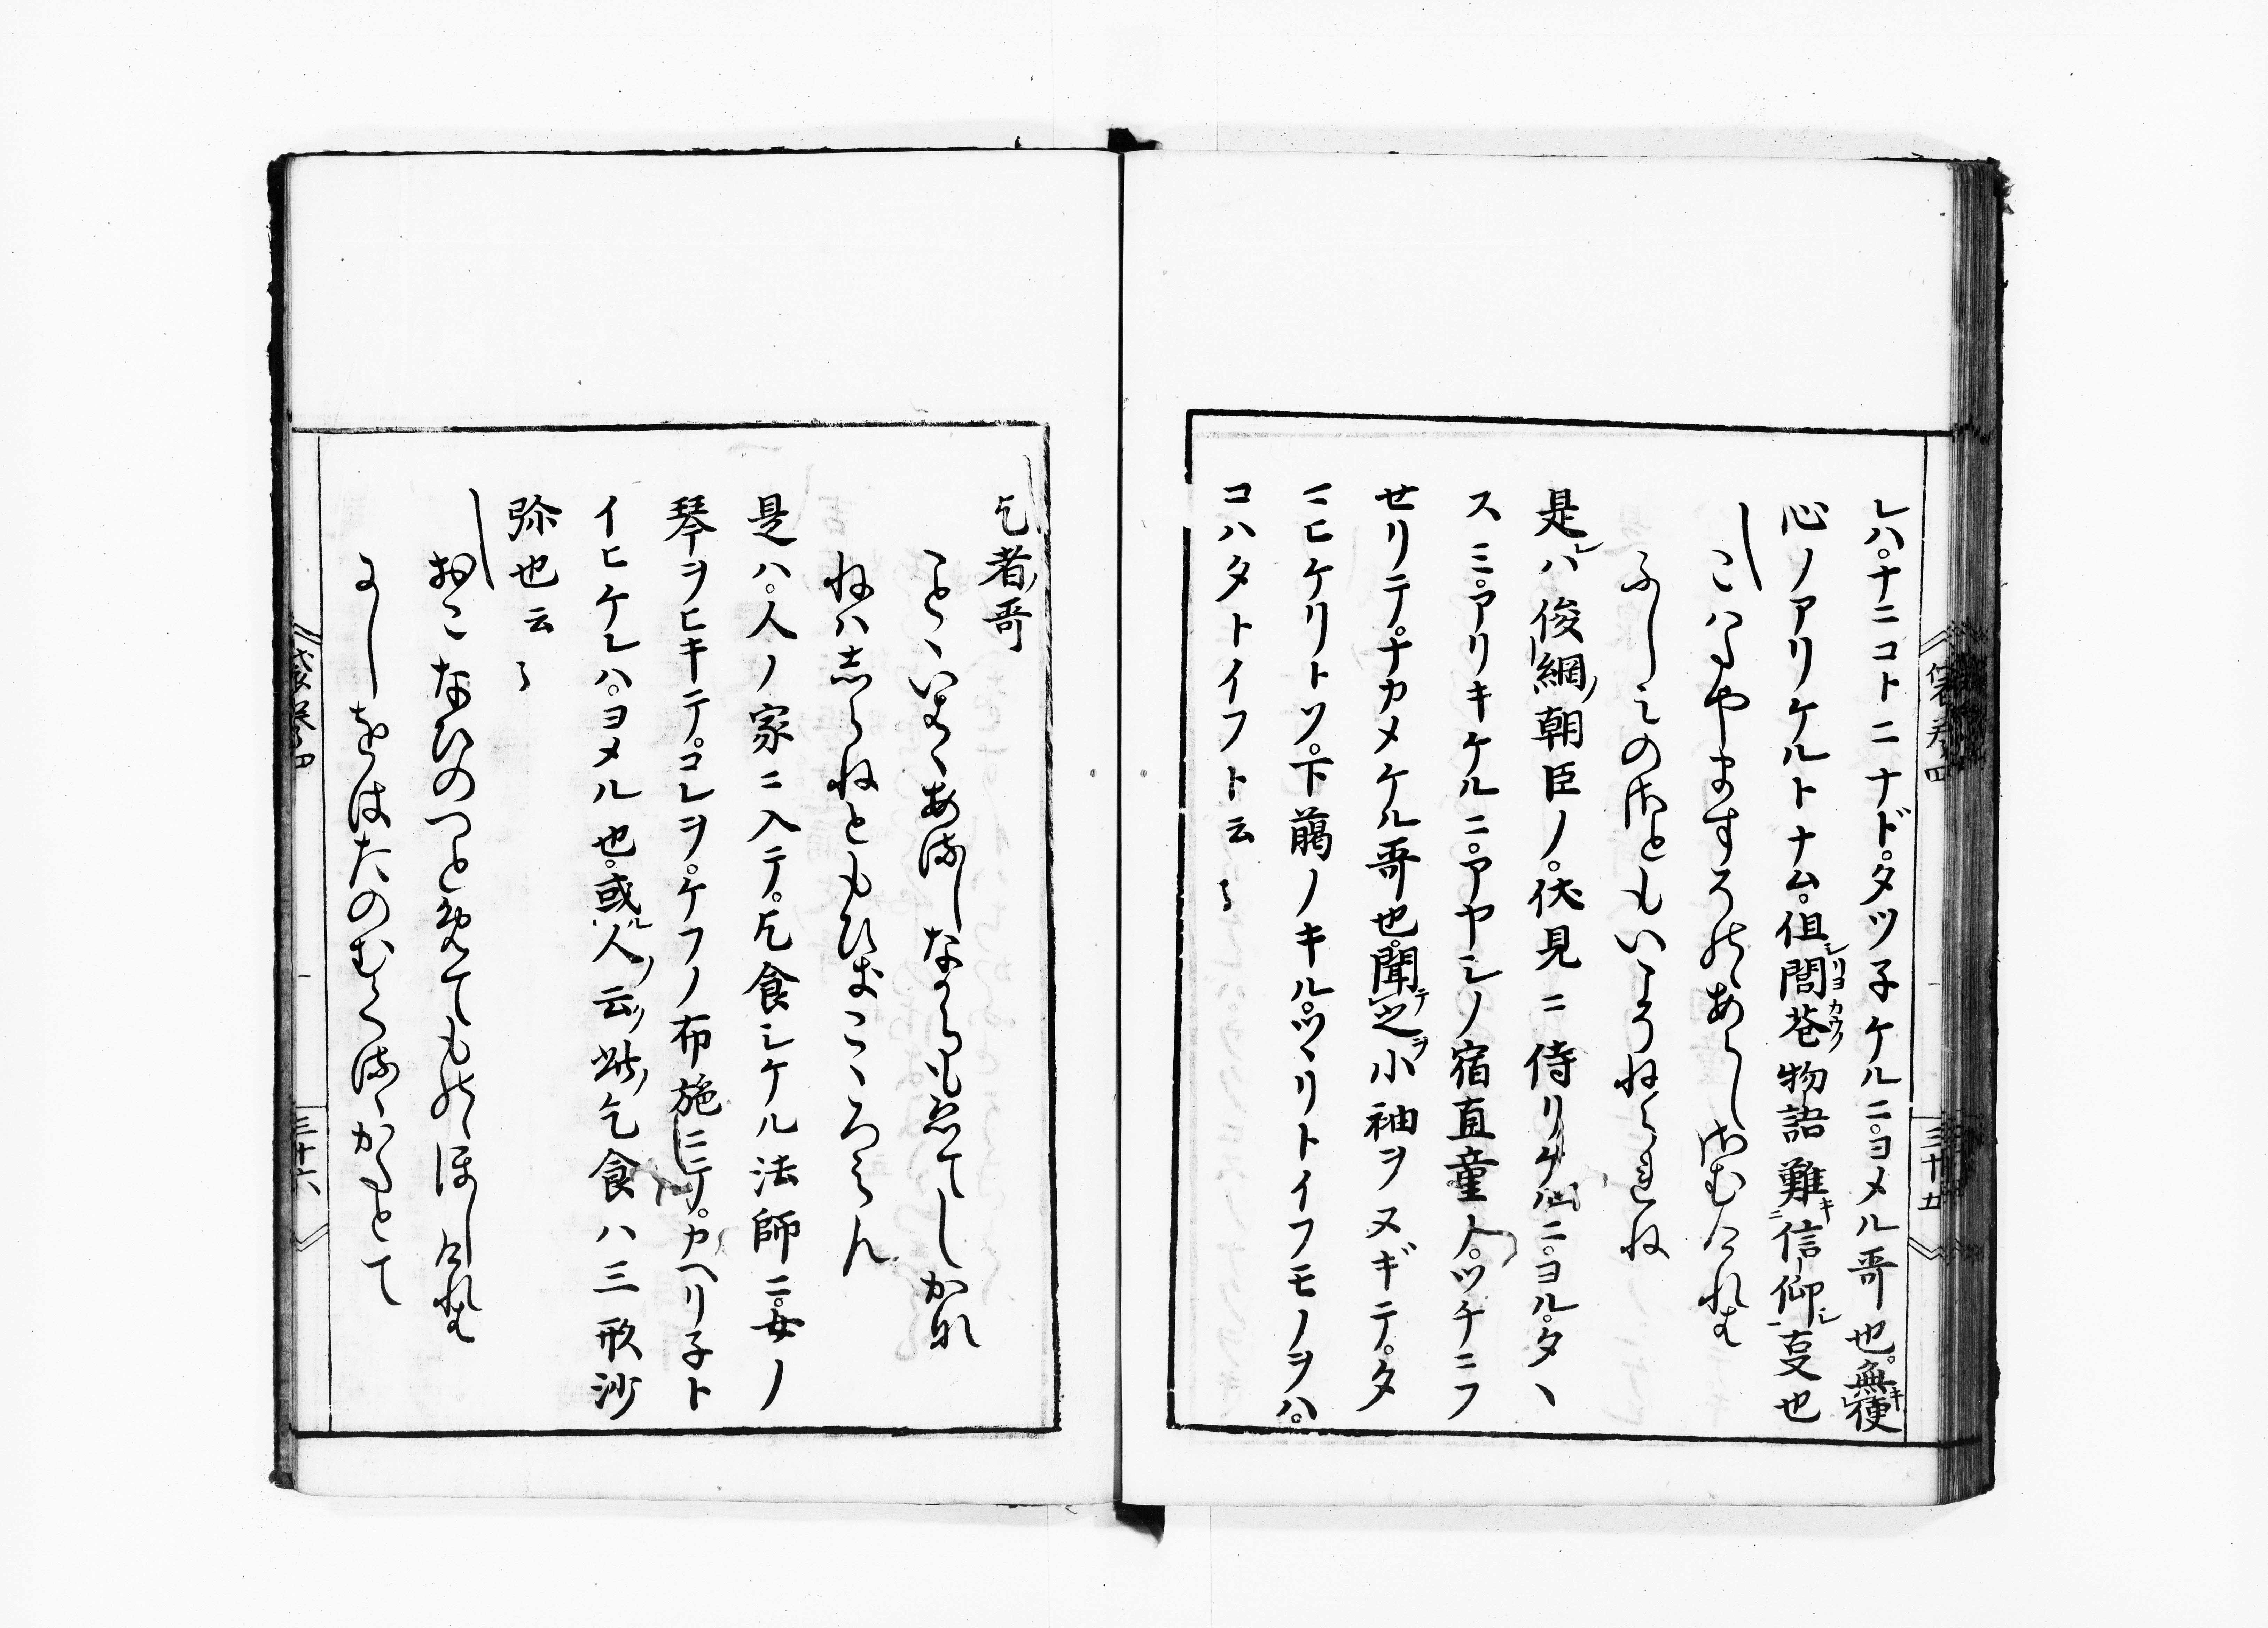 レハ。ナニコトニナド。タツ子ケルニ。ヨメル哥也。無便
心ノアリケルトナム。但閭巷物語難信仰叓也
こはたやますそのあらしのさむけれは
ふしみのさともいこそねられね
是ハ俊綱朝臣ノ。伏見ニ侍リケルニ。ヨル。タヽ
スミ。アリキケルニ。アヤシノ宿直童人。ツチニフ
セリテ。ナカメケル哥也。聞之小袖ヲヌギテ。タ
ニヒケリトソ。下﨟ノキル。ツヽリトイフモノヲハ。
コハタトイフト云〻
袋 巻四
三十五
乞者哥
ことゝいはゝあるしなからもゑてしかな
ねハしらねともひきこゝろみん
是ハ。人ノ家ニ入テ。乞食シケル法師ニ。女ノ
琴ヲヒキテ。コレヲ。ケフノ布施ニテ。カヘリ子ト
イヒケレハ。ヨメル也。或人云此乞食ハ三形沙
弥也云〻
おこなひのつとめてものゝほしけれは
よしをはたのむくるゝかたとて
袋 巻四
三十六